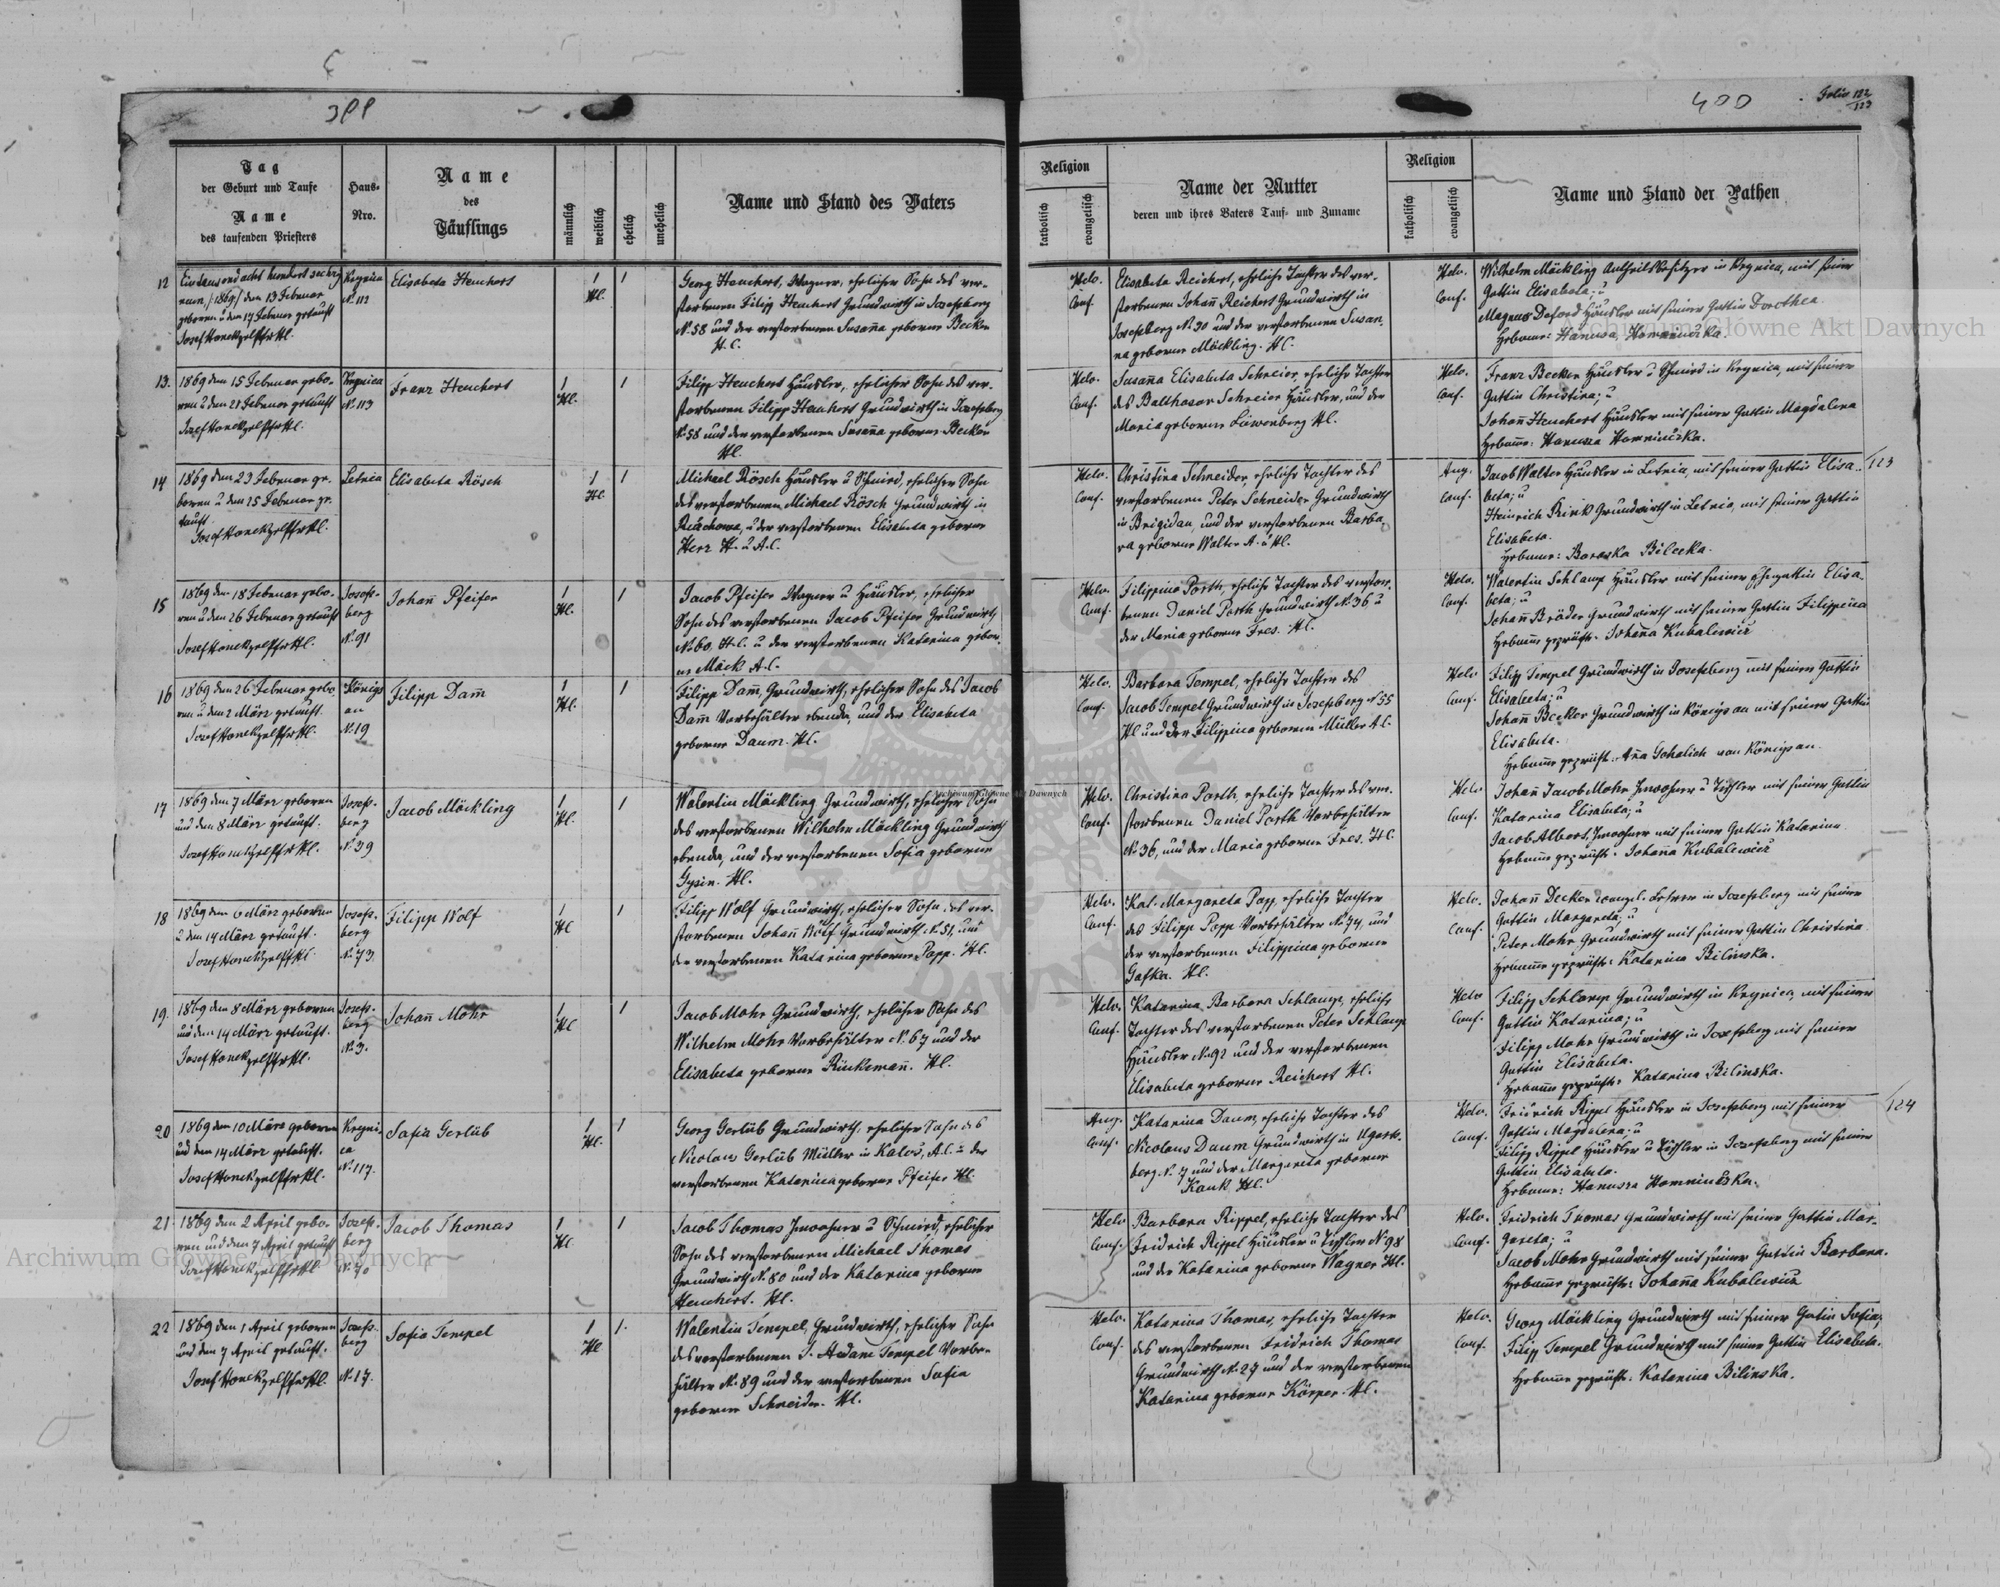 399
400
Folio 122
123
Tag
der Geburt und Taufe
Name
des taufenden Priesters
Haus-
Nro.
Name
des
Täuflings
männlich
weiblich
ehelich
unehelich
Name und Stand des Vaters
Religion
katholisch
evangelisch
Name der Mutter
deren und ihres Vaters Tauf- und Zuname
Religion
katholisch
evangelisch
Name und Stand der Pathen
12
Eintausend acht hundert sechzig
neun /:1869:/ den 13 Februar
geboren u den 17 Februar getauft
Josef Honek
Kegnica
N. 112
Elisabeta Heuchert
1
Hl.
1
Georg Heuchert, Wagner, ehelicher Sohn des ver-
storbenen Filipp Heuchert Grundwirth in Josefsberg
N. 58 und der verstorbenen Susaña geborne Becker
H. C.
Helv.
Conf.
Elisabeta Reichert, eheliche Tochter des ver-
storbenen Johañ Reichert Grundwirth in
Josefsberg N. 30 und der verstorbenen Susan-
na geborne Möckling. HC.
Helv.
Conf.
Wilhelm Möckling Antheilsbesitzer in Kegnica, mit seiner
Gattin Elisabeta; u
Magnus Häusler mit seiner Gattin Dorothea
Hebame: Hanusa
13.
1869 den 15 Februar gebo-
ren u den 21 Februar getauft
Josef Honek
Kegnica
N. 113
Franz Heuchert
1
Hl.
1
Filipp Heuchert Häusler, ehelicher Sohn des ver-
storbenen Filipp Heuchert Grundwirth in Josefsberg
N. 58 und der verstorbenen Susaña geborne Becker
Hl.
Helv.
Conf.
Susaña Elisabeta Schreier, eheliche Tochter
des Balthasar Schreier Häusler, und der
Maria geborne Löwenberg Hl.
Helv.
Conf.
Franz Becker Häusler u Schmied in Kegnica, mit seiner
Gattin Christina; u
Johañ Heuchert Häusler mit seiner Gattin Magdalena
Hebame: Hanusza
14
1869 den 23 Februar ge-
boren u den 25 Februar ge-
tauft
Josef Honek
Letnia
Elisabeta Rösch
1
Hl.
1
Michael Rösch Häusler u Schmied, ehelicher Sohn
des verstorbenen Michael Rösch Grundwirth in
u der verstorbenen Elisabeta geborne
Herz H. u A.C.
Helv.
Conf.
Christina Schneider, eheliche Tochter des
verstorbenen Peter Schneider Grundwirth
in Brigidau, und der verstorbenen Barba-
ra geborne Walter A. u Hl.
Aug.
Conf.
Jacob Walter Häusler in Letnia, mit seiner Gattin Elisa-
beta; u
Heinrich Rink Grundwirth in Letnia, mit seiner Gattin
Elisabeta.
Hebame: Baraska Bilecka.
123
15
1869 den 18 Februar gebo-
ren u den 26 Februar getauft
Josef Honek
Josefs-
berg
N. 91
Johañ Pfeifer
1
Hl.
1
Jacob Pfeifer Wagner u Häusler, ehelicher
Sohn des verstorbenen Jacob Pfeifer Grundwirth
N. 60, H.C. u der verstorbenen Katarina gebor-
ne Mäck A.C.
Helv.
Conf.
Filippina Porth, eheliche Tochter des verstor-
benen Daniel Porth Grundwirth N. 36 u
der Maria geborne Fres. Hl.
Helv.
Conf.
Walentin Schlamp Häusler mit seiner Ehegattin Elisa-
beta; u
Johañ Bräder Grundwirth mit seiner Gattin Filippina
Hebame geprüft: Johaña Kubalewicz
16
1869 den 26 Februar gebo-
ren u den 2 März getauft.
Josef Honek
Königs
au
N. 19
Filipp Dam̃
1
Hl.
1
Filipp Dam̃, Grundwirth, ehelicher Sohn des Jacob
Dam̃ Vorbehälter ebenda, und der Elisabeta
geborne Daum. Hl.
Helv.
Conf.
Barbara Tempel, eheliche Tochter des
Jacob Tempel Grundwirth in Josefsberg N 55
Hl und der Filippina geborne Müller A.C.
Helv
Conf.
Filipp Tempel Grundwirth in Josefsberg mit seiner Gattin
Elisabeta; u
Johañ Becker Grundwirth in Königsau mit seiner Gattin
Elisabeta.
Hebame geprüft: Aña von Königsau.
17
1869 den 7 März geboren
und den 8 März getauft.
Josef Honek
Josefs-
berg
N. 39
Jacob Möckling
1
Hl.
1
Walentin Möckling Grundwirth, ehelicher Sohn
des verstorbenen Wilhelm Möckling Grundwirth
ebenda, und der verstorbenen Sofia geborne
Gysin. Hl.
Helv.
Conf.
Christina Porth, eheliche Tochter des ver-
storbenen Daniel Porth Vorbehälter
N. 36, und der Maria geborne Fres. HC
Helv.
Conf.
Johañ Jacob Mohr Inwohner u Tischler mit seiner Gattin
Katarina Elisabeta; u
Jacob Albert, Inwohner mit seiner Gattin Katarina
Hebame geprüft. Johaña Kubalewicz
18
1869 den 6 März geboren
u den 14 März getauft.
Josef Honek
Josefs-
berg
N. 73.
Filipp Wolf
1
Hl
1
Filipp Wolf Grundwirth, ehelicher Sohn des ver-
storbenen Johañ Wolf Grundwirth N. 51 und
der verstorbenen Katarina geborne Papp. Hl.
Helv.
Conf.
Kat. Margareta Popp, eheliche Tochter
des Filipp Popp Vorbehälter N. 74, und
der verstorbenen Filippina geborne
Gafka. Hl.
Helv.
Conf.
Johañ Decker evangel. Lehrer in Josefsberg mit seiner
Gattin Margareta; u
Peter Mohr Grundwirth mit seiner Gattin Christina
Hebame geprüft: Katarina Bilinska.
19.
1869 den 8 März geboren
und den 14 März getauft.
Josef Honek
Josefs-
berg
N. 3.
Johañ Mohr
1
Hl
1
Jacob Mohr Grundwirth, ehelicher Sohn des
Wilhelm Mohr Vorbehälter N. 67 und der
Elisabeta geborne Rinkemañ. Hl.
Helv.
Conf.
Katarina Barbara Schlamp, eheliche
Tochter des verstorbenen Peter Schlamp
Häusler N. 92 und der verstorbenen
Elisabeta geborne Reichert Hl.
Helv
Conf.
Filipp Schlamp Grundwirth in Kegnica, mit seiner
Gattin Katarina; u
Filipp Mohr Grundwirth in Josefsberg mit seiner
Gattin Elisabeta.
Hebame geprüft: Katarina Bilinska.
124
20
1869 den 10 März geboren
und den 14 März getauft.
Josef Honek
Kegni-
ca
N. 117.
Sofia Gerlüb
1
Hl.
1
Georg Gerlüb Grundwirth, ehelicher Sohn des
Nicolaus Gerlüb Müller in Katos, A.C. u der
verstorbenen Katarina geborne Pfeifer Hl.
Aug.
Conf.
Katarina Daum, eheliche Tochter des
Nicolaus Daum Grundwirth in Ugarts-
berg N. 7 und der Margareta geborne
Kauk Hl.
Helv.
Conf.
Fridrich Rippel Häusler in Josefsberg mit seiner
Gattin Magdalena; u
Filipp Rippel Häusler u Tischler in Josefsberg mit seiner
Gattin Elisabeta.
Hebame: Hanusza
21
1869 den 2 April gebo-
ren und den 7 April getauft
Josef Honek
Josefs-
berg
N. 70
Jacob Thomas
1
Hl.
1
Jacob Thomas Inwohner u Schmied, ehelicher
Sohn des verstorbenen Michael Thomas
Grundwirth N. 80 und der Katarina geborne
Heuchert. Hl.
Helv
Conf.
Barbara Rippel, eheliche Tochter des
Fridrich Rippel Häusler u Tischler N 98
und der Katarina geborne Wagner Hl.
Helv.
Conf.
Fridrich Thomas Grundwirth mit seiner Gattin Mar-
gareta; u
Jacob Mohr Grundwirth mit seiner Gattin Barbara.
Hebame geprüft: Johaña Kubalewicz
22
1869 den 1 April geboren
und den 7 April getauft.
Josef Honek
Josefs-
berg
N. 17.
Sofia Tempel
1
Hl
1.
Walentin Tempel, Grundwirth, ehelicher Sohn
des verstorbenen J. Adam Tempel Vorbe-
hälter N. 89 und der verstorbenen Sofia
geborne Schneider. Hl.
Helv.
Conf.
Katarina Thomas, eheliche Tochter
des verstorbenen Fridrich Thomas
Grundwirth N. 27 und der verstorbenen
Katarina geborne Körper. Hl.
Helv.
Conf.
Georg Möckling Grundwirth mit seiner Gatin Sofia;
Filipp Tempel Grundwirth mit seiner Gattin Elisabeta.
Hebame geprüft: Katarina Bilinska.
Archiwum Główne Akt Dawnych
Archiwum Główne Akt Dawnych
Archiwum Główne Akt Dawnych